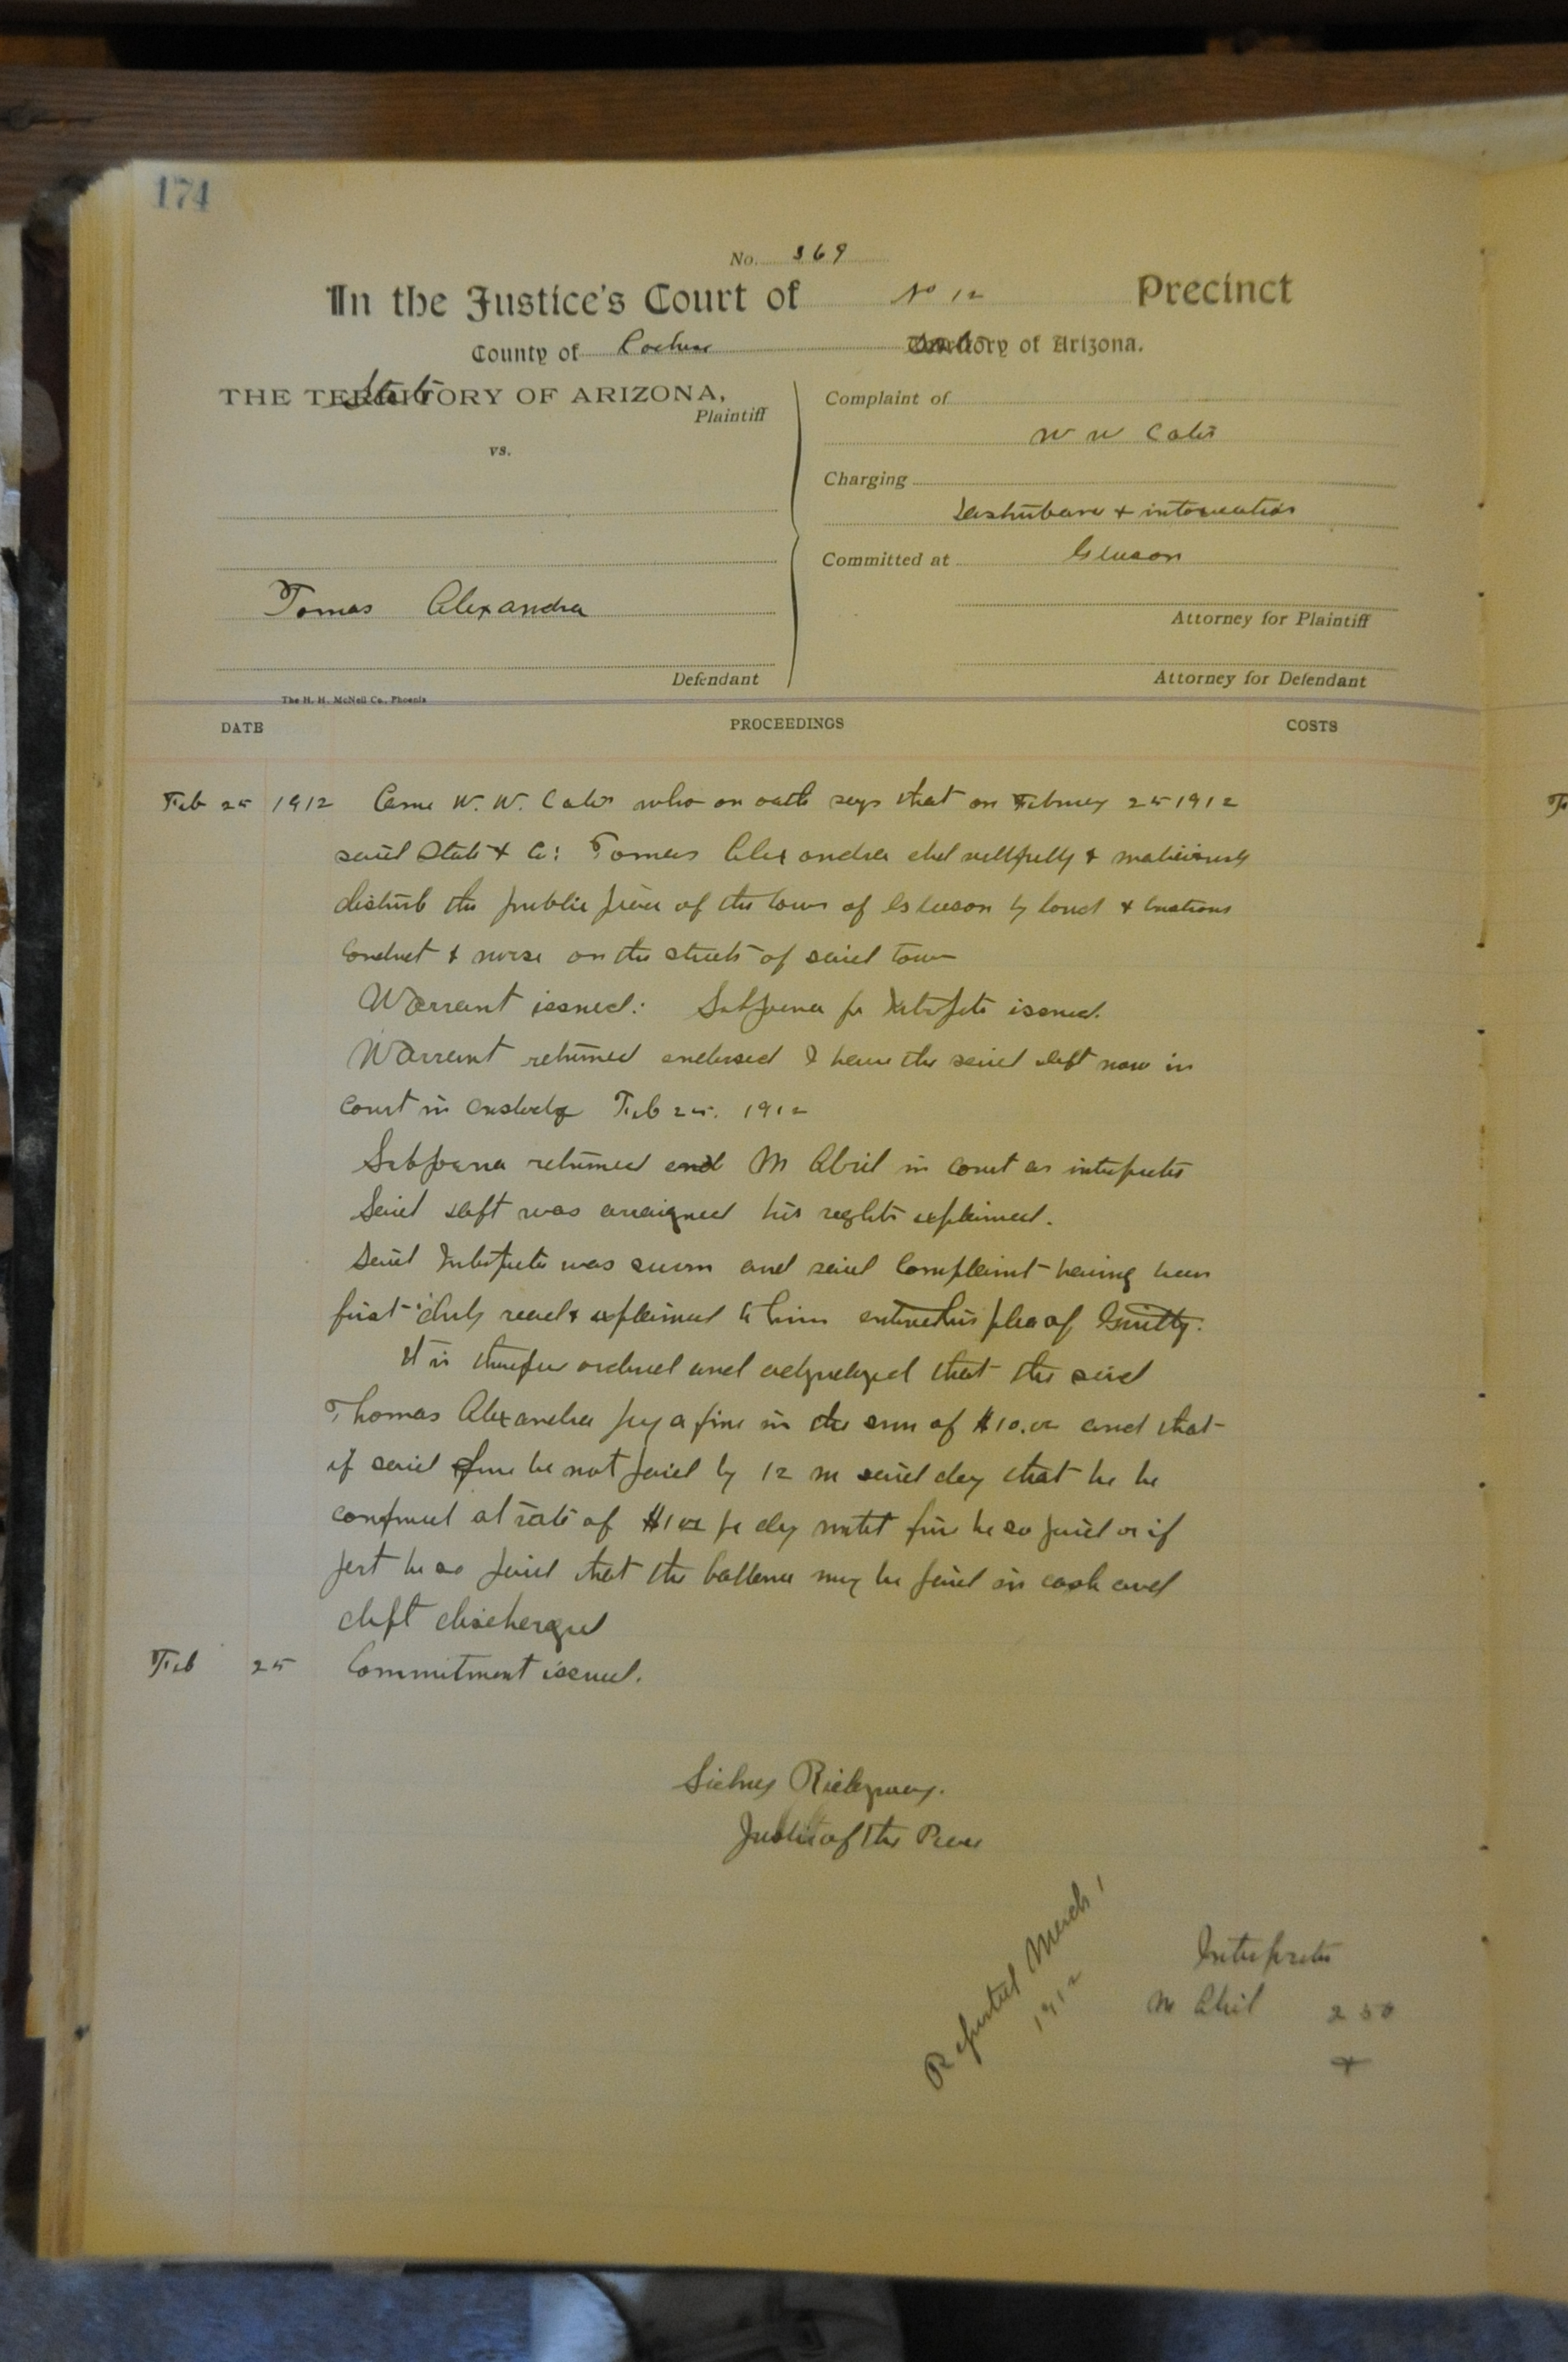 174
No. 369
In the Justice's Court of No 12 Precinct
County of Cochise Territory of Arizona.
State
THE TERRITORY OF ARIZONA,
Plaintiff
vs.
Tomas Alexandra
Defendant
Complaint of
W W
Charging
Disturbance + intoxication
Committed at Gleeson
Attorney for Plaintiff
Attorney for Defendant
The H. H. McNeil Co., Phoenix
DATE PROCEEDINGS COSTS
Feb 25 1912 Came W. W. who on oath says that on February 25 1912
said State & Co: Tomas Alexandra did willfully & maliciously
disturb the public peace of the town of Gleeson by loud &
conduct & noise on the streets of said town
Warrant issued: Subpoena for issued.
Warrant returned endorsed I have the said deft now in
court in custody Feb 25. 1912
Subpoena returned and M Abril in court as interpreter
Said deft was arraigned his rights explained.
Said Interpreter was sworn and said Complaint having been
first duly read & explained to him entered his plea of Guilty.
It is therefore ordered and adjudged that the said
Thomas Alexandra pay a fine in the sum of $10.00 and that
if said fine be not paid by 12 m said day that he be
confined at rate of $1 00 per day until fine be so paid or if
part be so paid that the ballance may be paid in cash and
deft discharged
Feb 25 Commitment issued.
Sidney Ridgway.
Justice of the Peace
Reported March 1
1912
Interpreter
M Abril 2 50